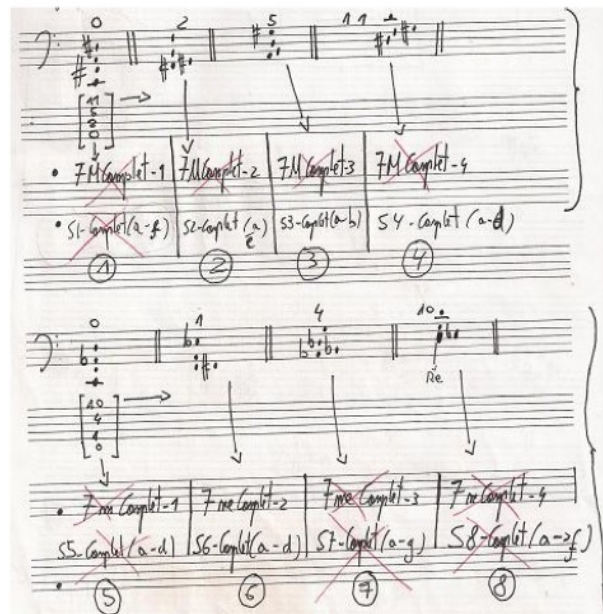 0 2 5 11
[11 5 2 0]
• 7M Complet-1 7M Complet-2 7M Complet-3 7M Complet-4
• S1-Complet (a-f) S2-Complet (a e S3-Complet (a-b) S4-Complet (a-d)
1 2 3 4
0 1 4 10
Re
[10 4 1 0]
• 7m Complet-1 7me Complet-2 7me Complet-3 7me Complet-4
S5-Complet (a-d) S6-Complet (a-d) S7-Complet (a-g) S8-Complet (a-f)
5 6 7 8